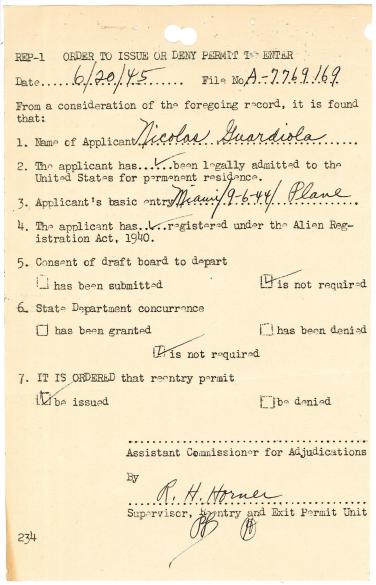 REP-1 ORDER TO ISSUE OR DENY PERMIT TO ENTER
Date 6/20/45 File No. A-7769169
From a consideration of the foregoing record, it is found
that:
1. Name of Applicant Nicolas Guardiola
2. The applicant has...✓..been legally admitted to the
United States for permanent residence.
3. Applicant's basic entry Miami/9-6-44/ Plane
4. The applicant has..✓..registered under the Alien Reg-
istration Act, 1940.
5. Consent of draft board to depart
has been submitted is not required
6. State Department concurrence
has been granted has been denied
is not required
7. IT IS ORDERED that reentry permit
be issued be denied
Assistant Commissioner for Adjudications
By
R. H. Horner
Supervisor, Reentry and Exit Permit Unit
234